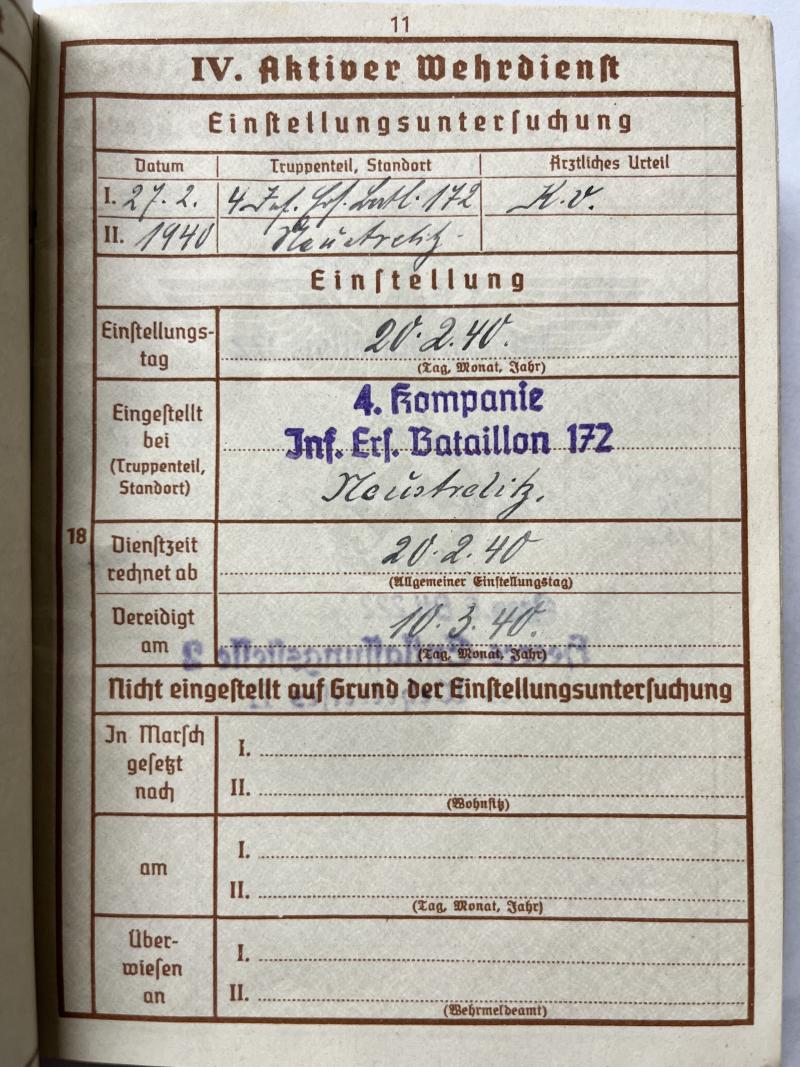 11
IV. Aktiver Wehrdienst
Einstellungsuntersuchung
Datum Truppenteil, Standort Ärztliches Urteil
I. 27. 2. 4 Inf. Ers. Batl. 172 K.v.
II. 1940 Neustrelitz
Einstellung
Einstellungs-
tag
20. 2. 40.
(Tag, Monat, Jahr)
Eingestellt
bei
(Truppenteil,
Standort)
4. Kompanie
Inf. Ers. Bataillon 172
Neustrelitz.
18
Dienstzeit
rechnet ab
20. 2. 40
(Allgemeiner Einstellungstag)
Vereidigt
am
10. 3. 40.
(Tag, Monat, Jahr)
Nicht eingestellt auf Grund der Einstellungsuntersuchung
In Marsch
gesetzt
nach
I.
II.
(Wohnsitz)
am
I.
II.
(Tag, Monat, Jahr)
Über-
wiesen
an
I.
II.
(Wehrmeldeamt)